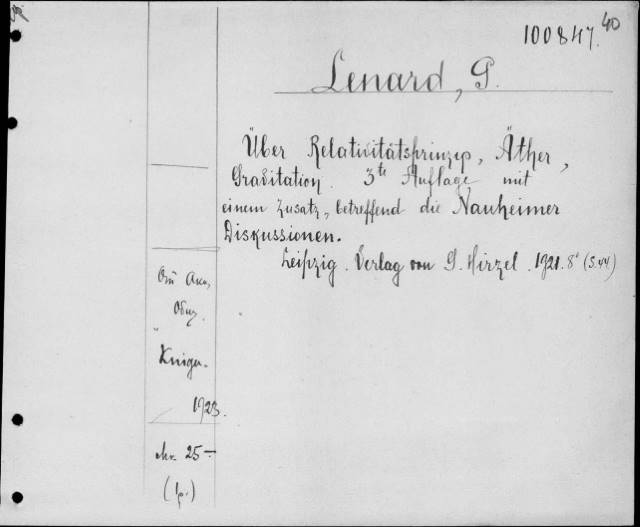 100847.40
Lenard, P.
Über Relativitätsprinzip, Äther,
Gravitation. 3te Auflage, mit
einem Zusatz, betreffend die Nauheimer
Diskussionen.
Leipzig. Verlag von S. Hirzel. 1921. 8° (S.44)
Kniga.
1923.
25-